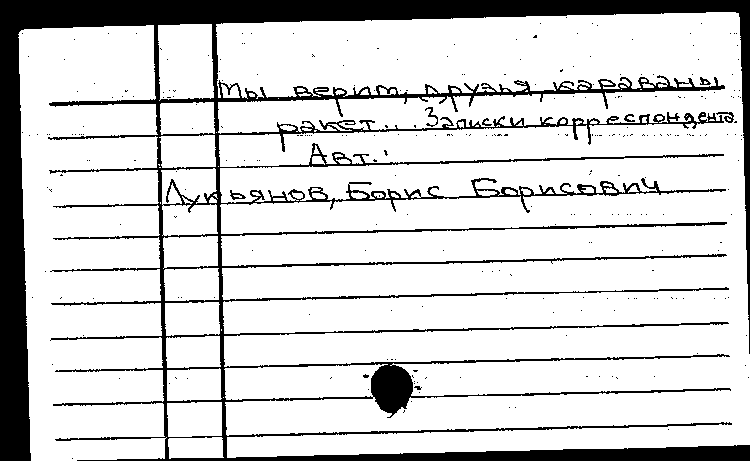 Мы верим, друзья, караваны
ракет... Записки корреспондента
Авт.:
Лукьянов, Борис Борисович